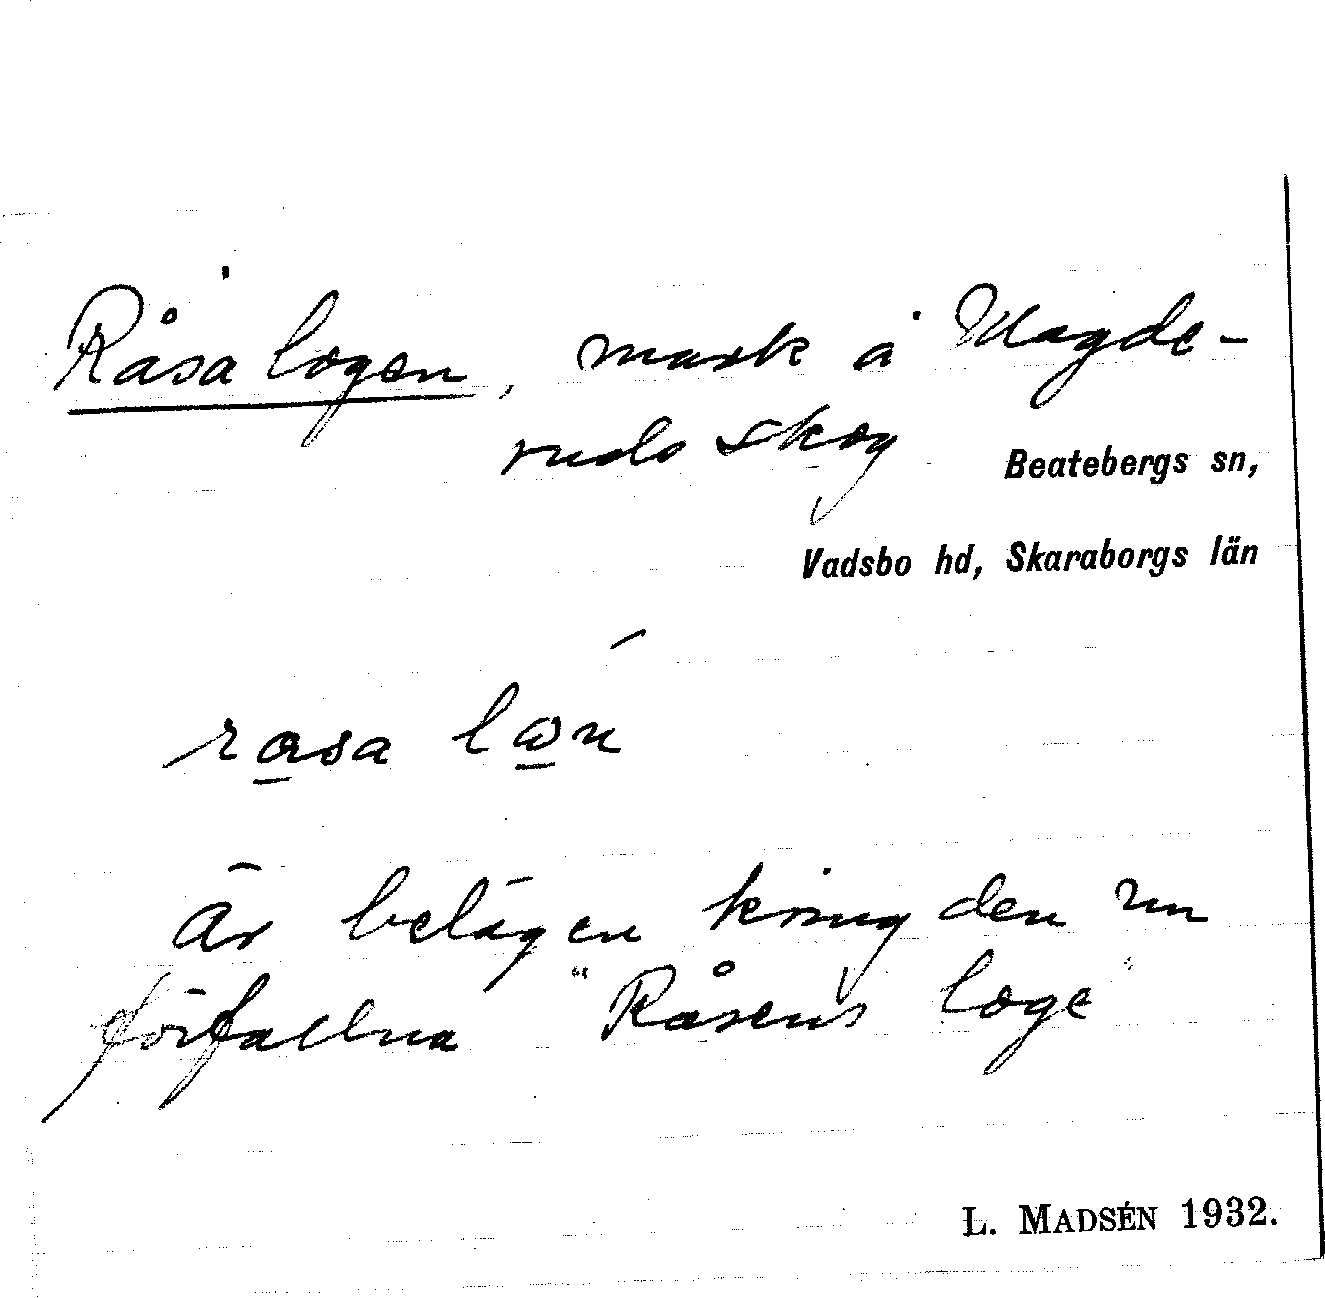 Råsalogen, mark å Magde-
ruds skog
Beatebergs sn,
Vadsbo hd, Skaraborgs län
råsa lån
är belägen kring den nu
förfallna "Råsens loge"
L. MADSÉN 1932.